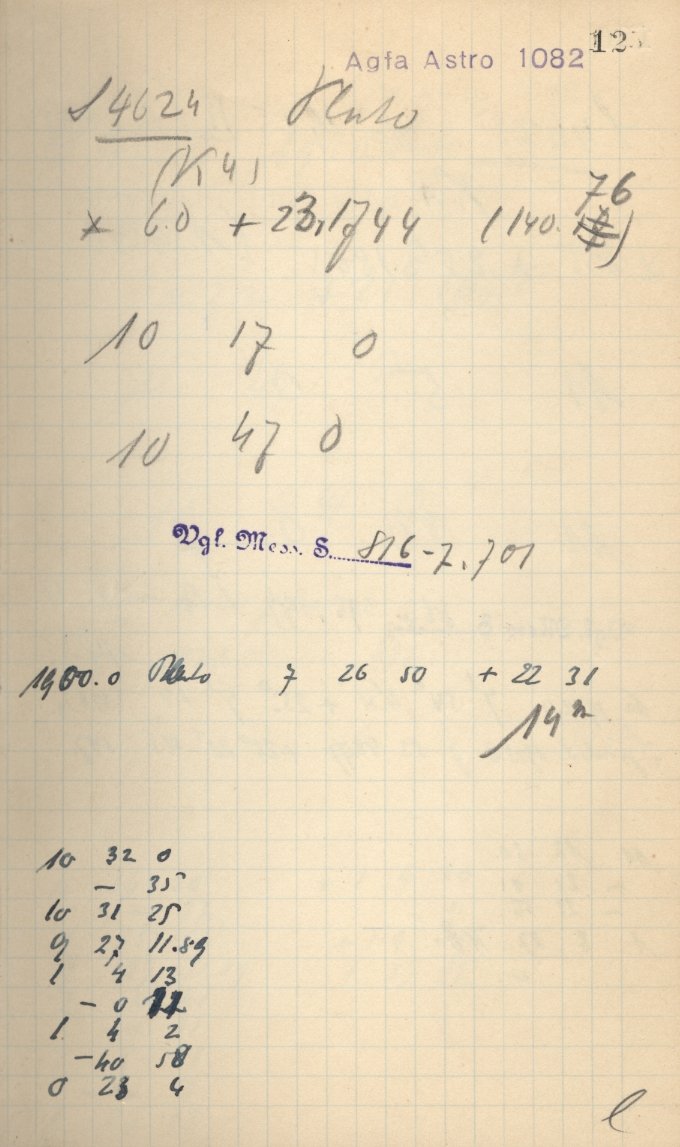 Agfa Astro 1082 12
S 4624 Pluto
(K 41
* 60 + 23,1744 (140. 76)
10 17 0
10 47 0
Vgl. Mess. S. 816-7, 701
1900.0 Pluto 7 26 50 + 22 31
14m
10 32 0
— 35
10 31 25
9 27 11.89
1 4 13
- 0 11
1 4 2
-40 58
0 23 4